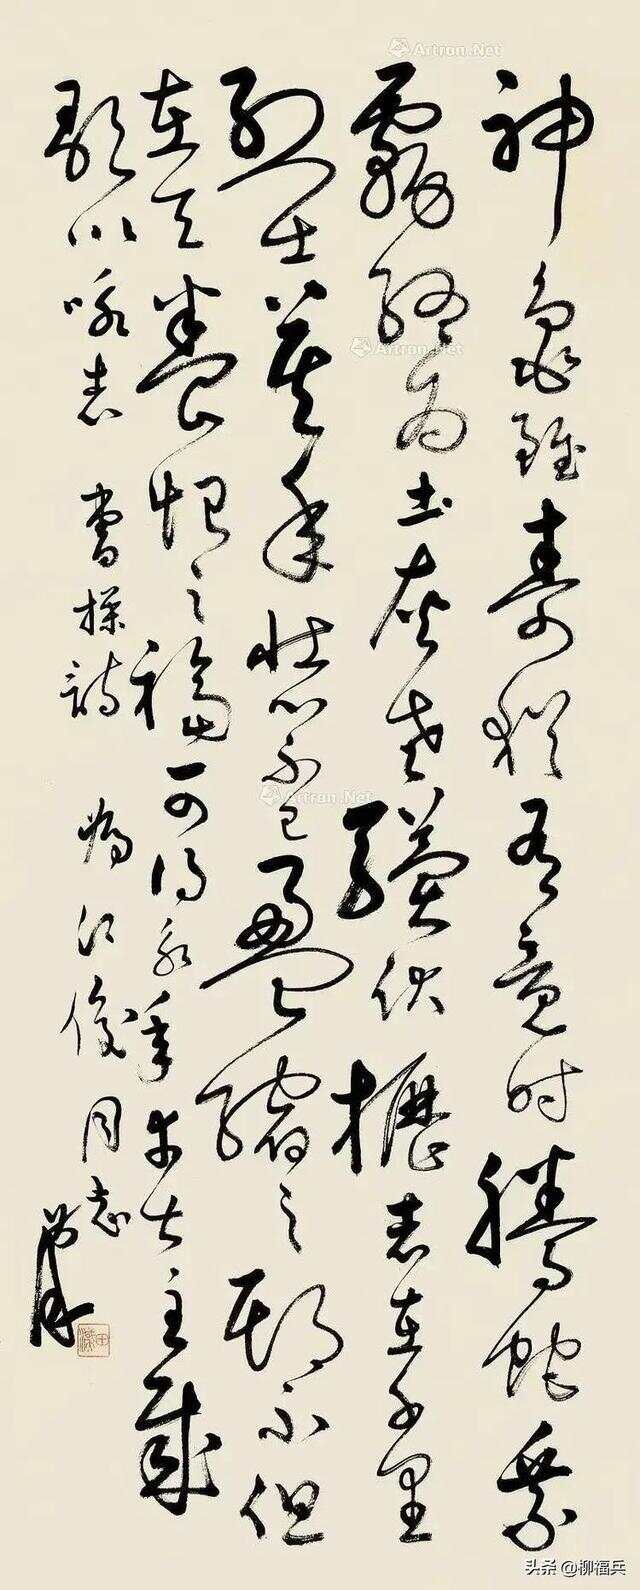 神龜雖壽猶有竟时騰蛇乘
霧終为土灰老驥伏櫪志在千里
烈士暮年壮心不已盈縮之期不但
在天養怡之福可得永年幸甚至哉
歌以咏志 曹操詩 為江俊同志
Artron.Net
Artron.Net
Artron.Net
头条 @柳福兵